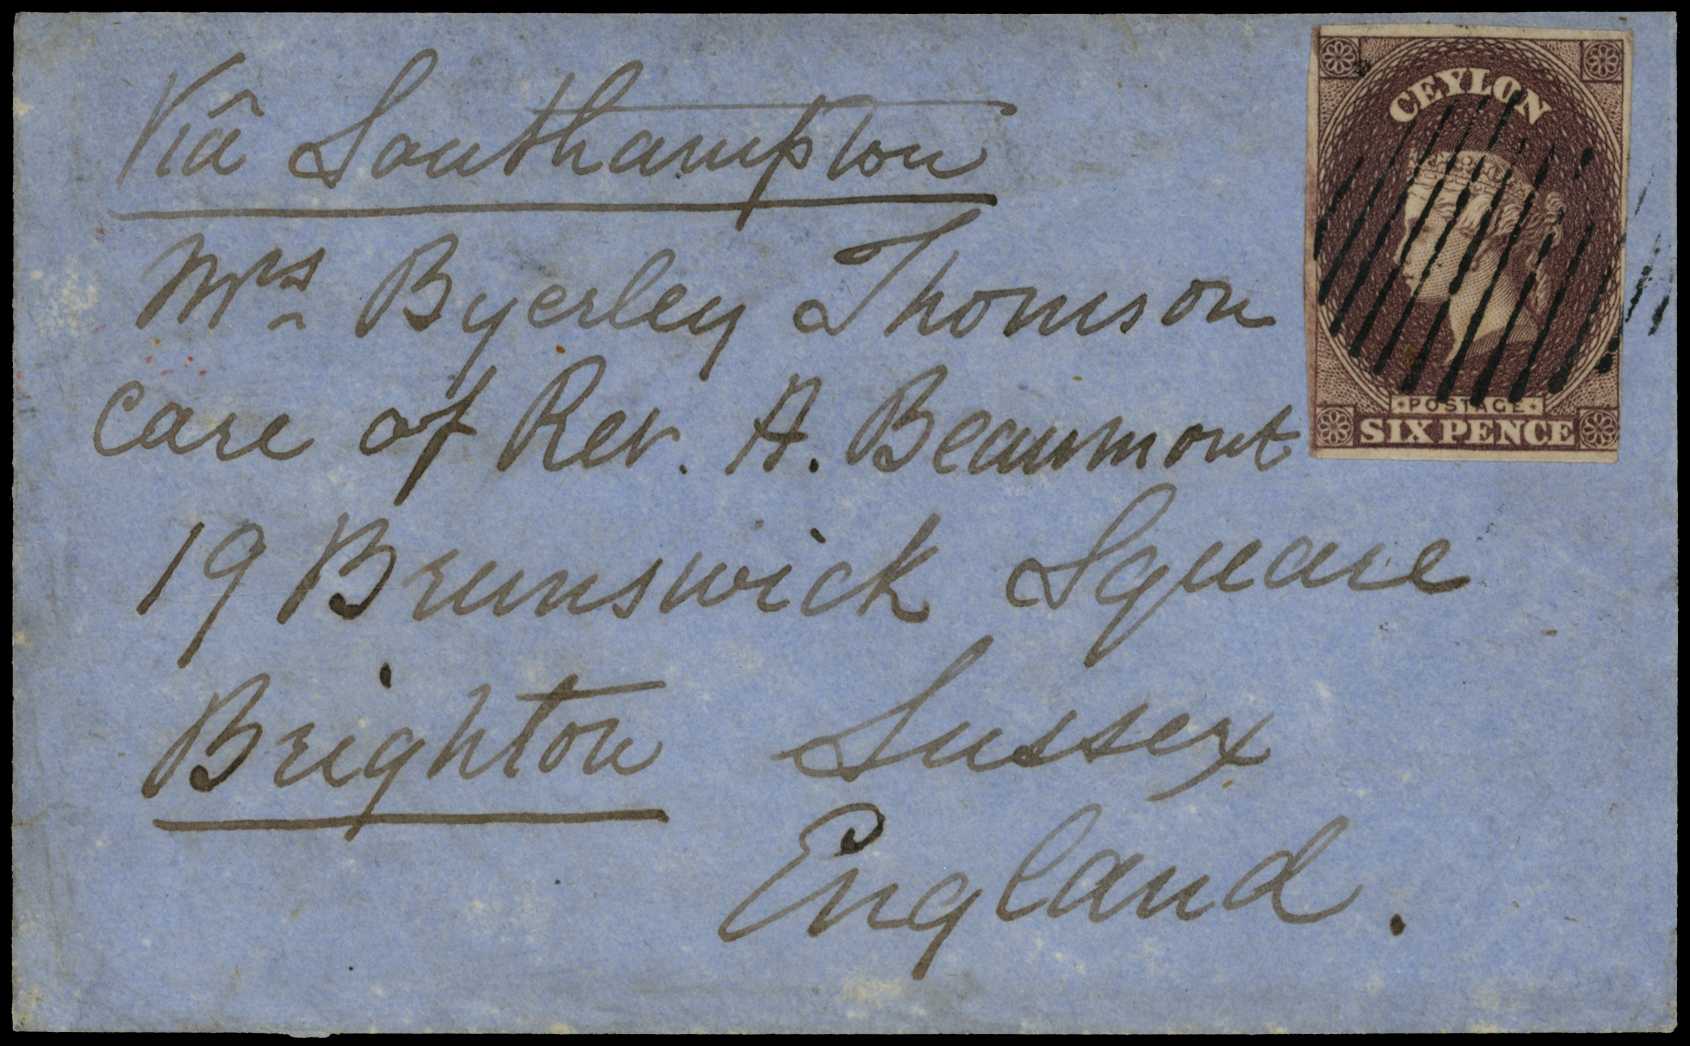 Viâ Southampton
CEYLON
Mrs Byerley Thomson
care of Rev. A. Beaumont
POSTAGE
SIX PENCE
19 Brunswick Square
Brighton Sussex
England.